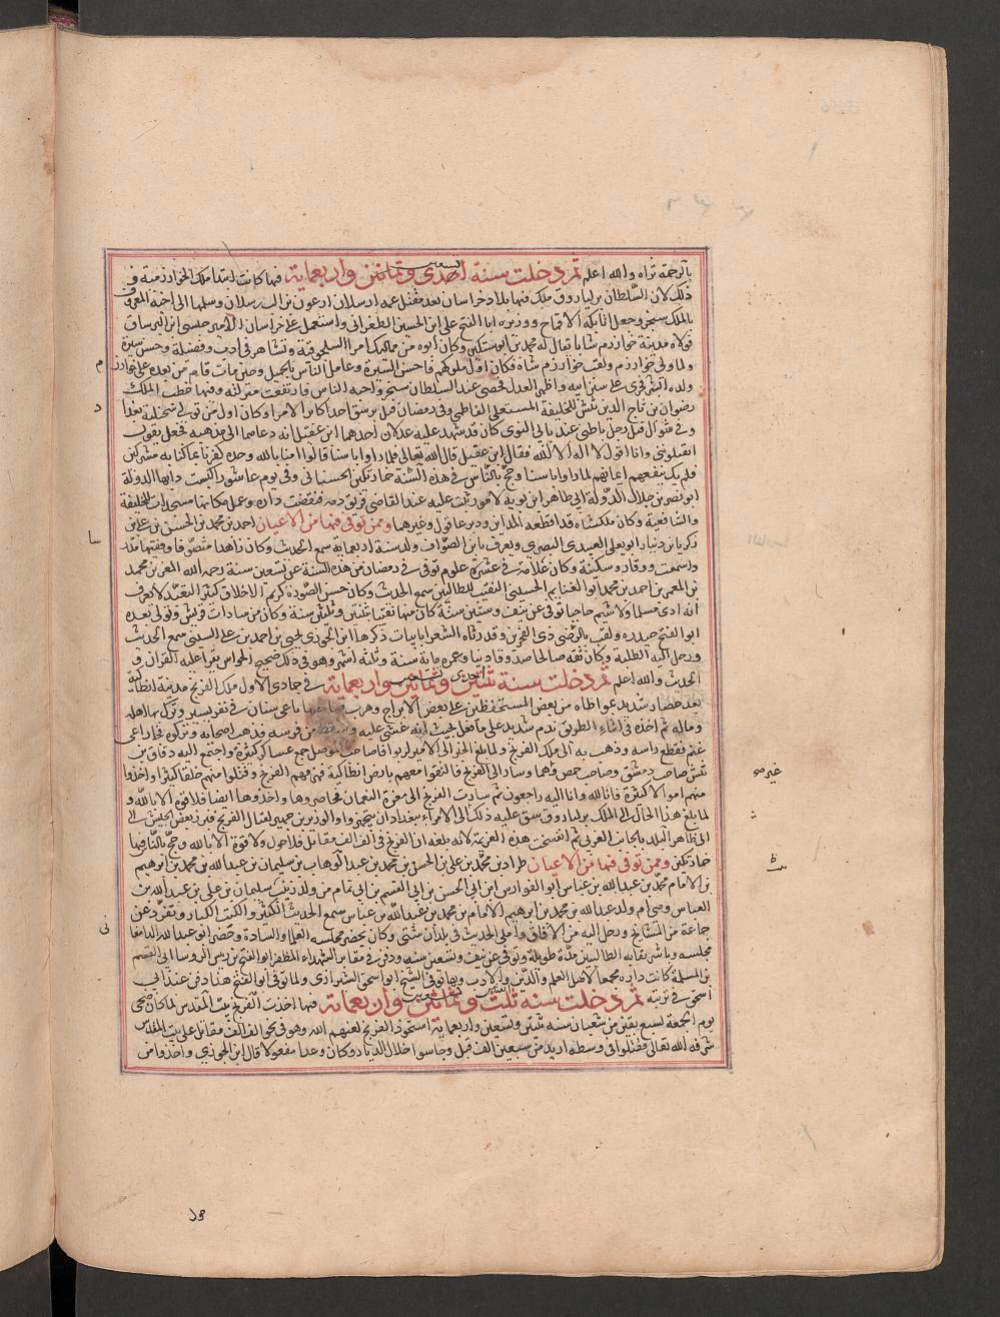 بالرحمة تراه والله اعلم ثم دخلت سنة احدى وثمانين واربعماية فيها كانت ابتدا ملك الخوارزمية و
ذلك لان السلطان بركياروق ملك فيها بلاد خراسان بعد مقتل عمه ارسلان ارعون بن الب رسلان وسلمها الى اخيه المعروف
بالملك سنجر وجعل اتابكه الامير قماج ووزيره ابا الفتح على ابن الحسين الطغرانى واستعمل على خراسان الامير حبشى ابن البرساق
فولاه مدينة خوارزم شابا يقال له محمد بن ابوستكين وكان ابوه من مماليك امرا السلجوقية ونشا هو فى ادب وفضيلة وحسن سيرة
ولما ولى خوارزم ولقب خوارزم شاه فكان اول ملوكهم فاحسن السيرة وعامل الناس بالجميل وحين مات قام من بعده على خوارزم
ولده اتسز فجرى على سنن ابيه واظهر العدل فحضى عند السلطان سنجر واحبه الناس فارتفعت منزلته وفيها خطب الملك
رضوان بن تاج الدين تتش للخليفة المستعلى الفاطمى وفى رمضان قتل برسق احد اكابر الامرا وكان اول من تولى شحنكة بغداد
وفى شوال قتل رجل باطنى عند باب النوى كان قد شهد عليه عدلان احدهما ابن عقيل انه دعاهما الى مذهبه فجعل يقول
اتقتلونى وانا اقول لا اله الا الله فقال ابن عقيل قال الله تعالى فلما راوا باسنا قالوا امنا بالله وحده وكفرنا بما كنا به مشركين
فلم يك ينفعهم ايمانهم لما راوا باسنا وحج بالناس فى هذه السنة خمارتكين الحسنانى وفى يوم عاشورا كبست دار بها الدولة
ابو نصر بن جلال الدولة ابى طاهر ابن بويه لامور ثبت عليه عند القاضى فريق دمه فنقضت داره وعمل مكانها مسجدان للحنفية
والشافعية وكان ملكشاه قد اقطعه المداين ودير عاقول وغيرهما وممن توفى فيها من الاعيان احمد بن محمد بن الحسن بن على بن
زكريا بن دينار ابو يعلى العبدى البصرى ويعرف بابن الصواف ولد سنة اربعماية سمع الحديث وكان زاهدا متصوفا وفقيها مدرسا
ذا سمعت ووقار وسكينة وكان علامة فى عشرة علوم توفى فى رمضان من هذه السنة عن تسعين سنة رحمه الله المعمر بن محمد
بن المعمر بن احمد بن محمد ابو الغنايم الحسينى النقيب للطالبين سمع الحديث وكان حسن الصورة كريم الاخلاق كثير التعبد لا يعرف
انه اذى مسلما ولا شتم حاجبا توفى عن نيف وستين سنة كان منها نقيبا ثنتين وثلثين سنة وكان من سادات قريش وتولى بعده
ابو الفتوح حيدره ولقب بالرضى ذى الفخرين وقد رثاه الشعرا بابيات ذكرها ابن الجوزى يحيى بن احمد بن على السيبى سمع الحديث
ورحل اليه الطلبة وكان ثقه صالحا صدوقا دينا وعمره ماية سنة وثلثه اشهر وهو فى ذلك صحيح الحواس يقرا عليه القران و
الحديث والله اعلم ثم دخلت سنة ثنتين وثمانين واربعماية فى جمادى الاول ملك الفرنج مدينة انطاكية
بعد حصار شديد بمواطاه من بعض المستحفظين على بعض الابراج وهرب صاحبها باغى سنان فى نفر يسير وترك بها اهله
وماله ثم اخذه فى اثناء الطريق ندم شديد على ما فعل بحيث انه غشى عليه وسقط من فرسه فذهب اصحابه وتركوه فجا راعى
غنم فقطع راسه وذهب به الى ملك الفرنج ولما بلغ الخبر الى الامير كربوقا صاحب الموصل جمع عساكر كثيرة واجتمع اليه دقاق بن
تتش صاحب دمشق وصاحب حمص وغيرهما وسار الى الفرنج فالتقوا معهم بارض انطاكية فهزمهم الفرنج وقتلوا منهم خلقا كثيرا واخذوا
منهم اموالا كثيرة فانا لله وانا اليه راجعون ثم سارت الفرنج الى معرة النعمان فحاصروها واخذوها ايضا فلا قوة الا بالله و
لما بلغ هذا الحال الى الملك بركياروق شق عليه ذلك الى الامراء ببغداد ان يتجهزوا والوزير بن جهير لقتال الفرنج فبرز بعض الجيش الى
الى ظاهر البلد بالجانب الغربى ثم انفسخت هذه العزيمة لانه بلغه ان الفرنج فى الف الف مقاتل فلا حول ولا قوة الا بالله وحج بالناس فيها
خمارتكين وممن توفى فيها من الاعيان طراد بن محمد بن على بن الحسن بن محمد بن عبد الوهاب بن سليمان بن عبد الله بن محمد بن ابرهيم
بن الامام محمد بن عبد الله بن عباس ابو الفوارس ابن ابى الحسن بن ابى القسم بن ابى تمام من ولد زينب سليمان بن على بن عبد الله بن
العباس وهى ام ولد عبد الله بن محمد بن ابرهيم الامام بن محمد بن عبد الله بن عباس سمع الحديث الكثير والكتب الكبار وتفرد عن
جماعة من المشايخ ورحل اليه من الافاق واملى الحديث فى بلدان شتى وكان يحضر مجلسه العلما والسادة وحضر ابو عبد الله الدامغانى
مجلسه وباشر نقابة الطالبين مدة طويلة وتوفى عن نيف وتسعين سنه ودفن فى مقابر الشهداء المظفر ابو الفتح بن ريس الروسا ابى القسم
بن المسلمة كانت داره مجمعا لاهل العلم والدين والادب وبها توفى الشيخ ابو اسحق الشيرازى ولما توفى ابو الفتح هذا دفن عند ابى
اسحق فى تربته ثم دخلت سنة ثلث وثمانين واربعماية فيها اخذت الفرنج بيت المقدس لما كان ضحى
يوم الجمعة لسبع بقين من شعبان سنه ثنتين وتسعين واربعماية استحوذ الفرنج لعنهم الله وهو فى نحو الف الف مقاتل على بيت المقدس
شرفه الله تعالى فقتلوا فى وسطه ازيد من سبعين الف قتيل وجاسوا خلال الديار وكان وعدا مفعولا قال ابن الجوزي واخذوا من